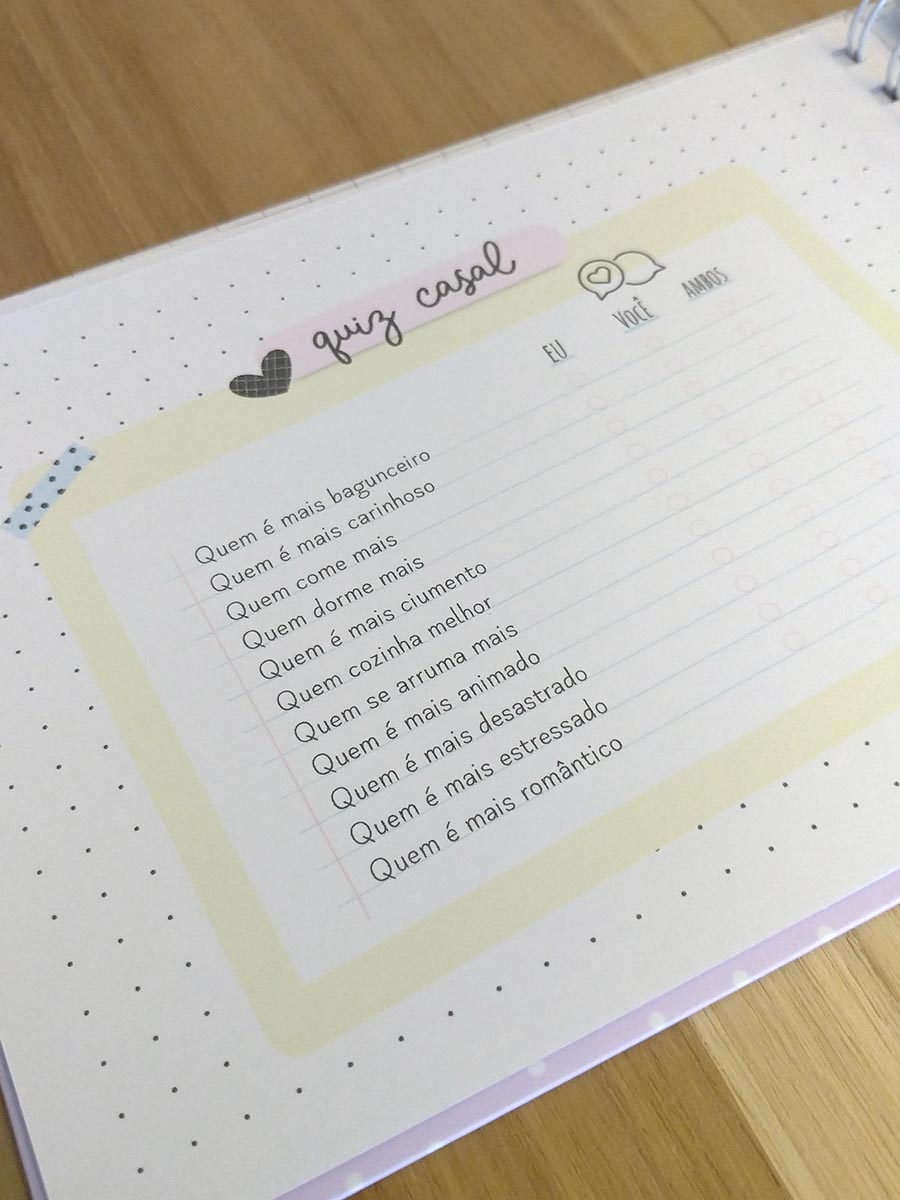 quiz casal
EU VOCÊ AMBOS
Quem é mais bagunceiro
Quem é mais carinhoso
Quem come mais
Quem dorme mais
Quem é mais ciumento
Quem cozinha melhor
Quem se arruma mais
Quem é mais animado
Quem é mais desastrado
Quem é mais estressado
Quem é mais romântico